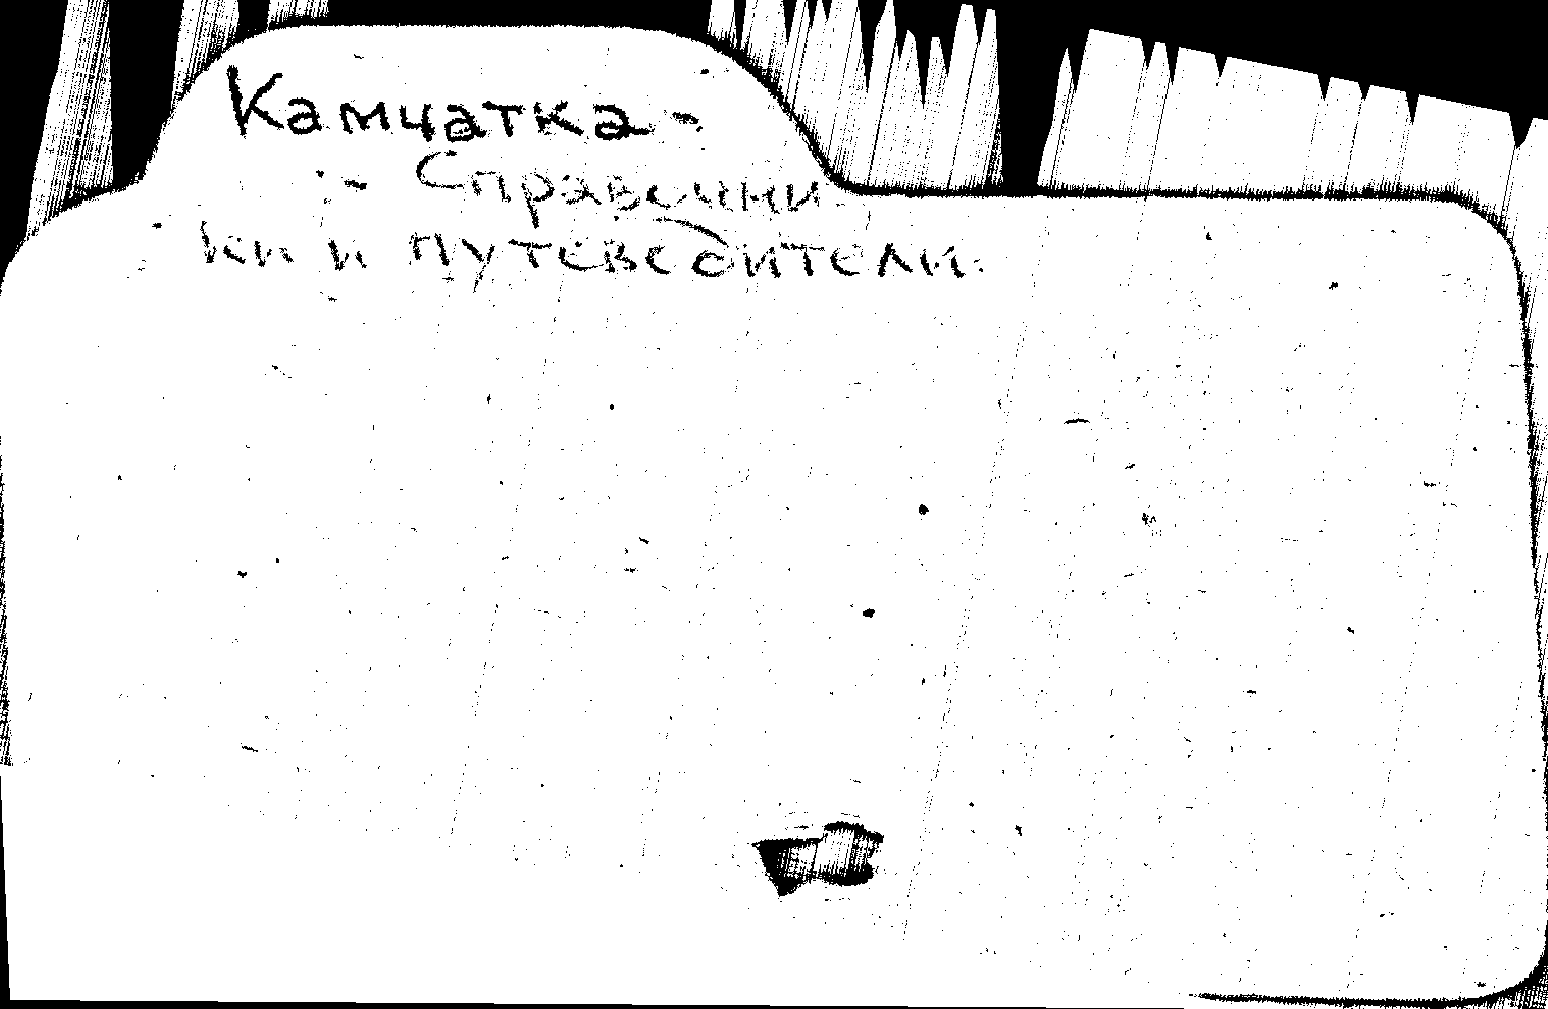 Камчатка -
- Справочни-
ки и путеводители.